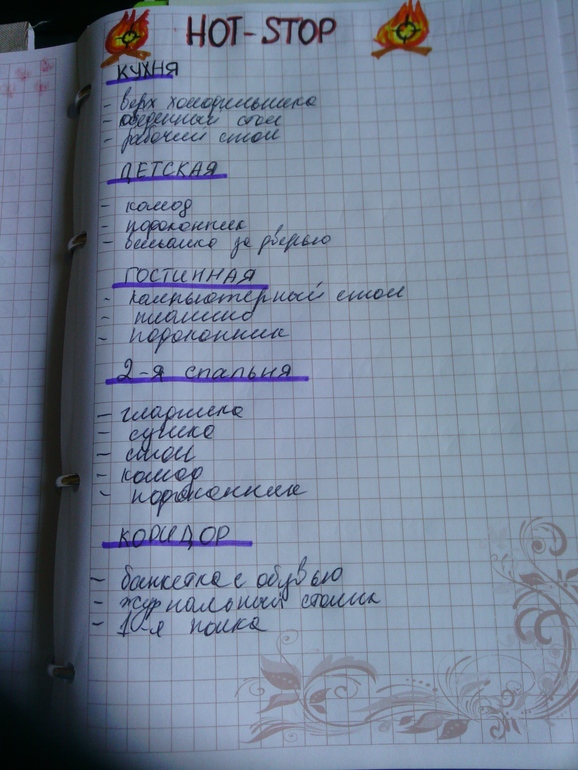 HOT-STOP
КУХНЯ
- верх холодильника
- обеденный стол
- рабочий стол
ДЕТСКАЯ
- комод
- подоконник
- вешалка за дверью
ГОСТИННАЯ
- компьютерный стол
- пианино
- подоконник
2-я спальня
- гладилка
- сушка
- стол
- комод
- подоконник
КОРИДОР
- банкетка с обувью
- журнальный столик
- 1-я полка